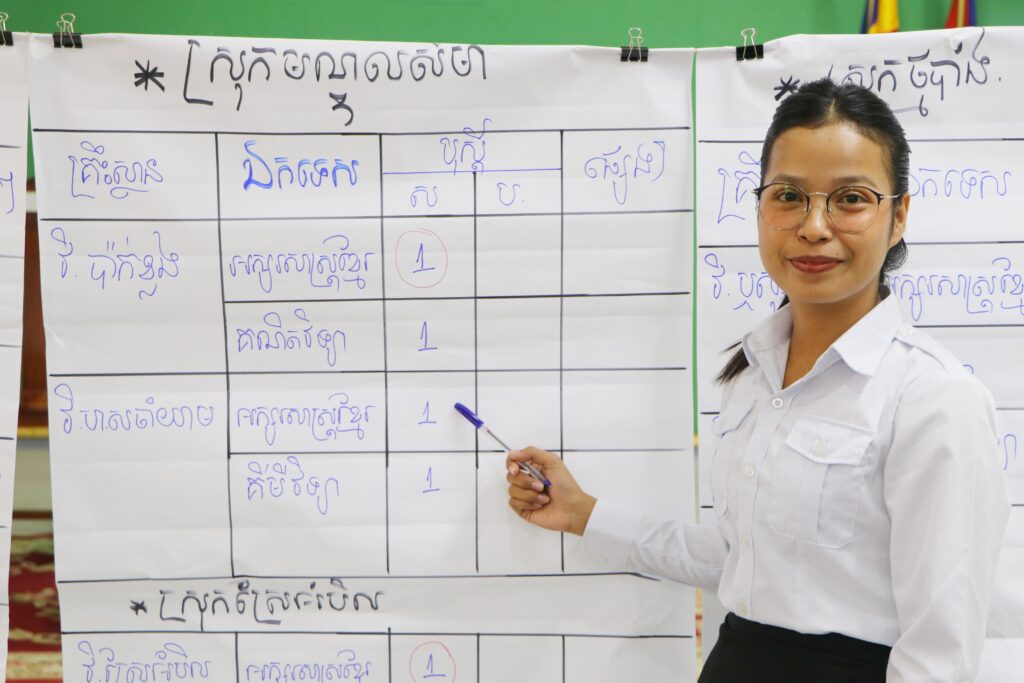 * ស្រុកមណ្ឌលសីមា
គ្រឹះស្ថាន ឯកទេស ប្រុស្តិ៍ ផ្សេងៗ
ស ប.
វិ. ប៉ាក់ខ្លង អក្សរសាស្ត្រខ្មែរ 1
គណិតវិទ្យា 1
វិ. ហ.ស ចាំយាម អក្សរសាស្ត្រខ្មែរ 1
គីមីវិទ្យា 1
* ស្រុកស្រែអំបិល
វិ. ស្រែអំបិល អក្សរសាស្ត្រខ្មែរ 1
* ស្រុកថ្មបាំង.
គ្រឹះ ឯកទេស
វិ. អក្សរសាស្ត្រខ្មែរ